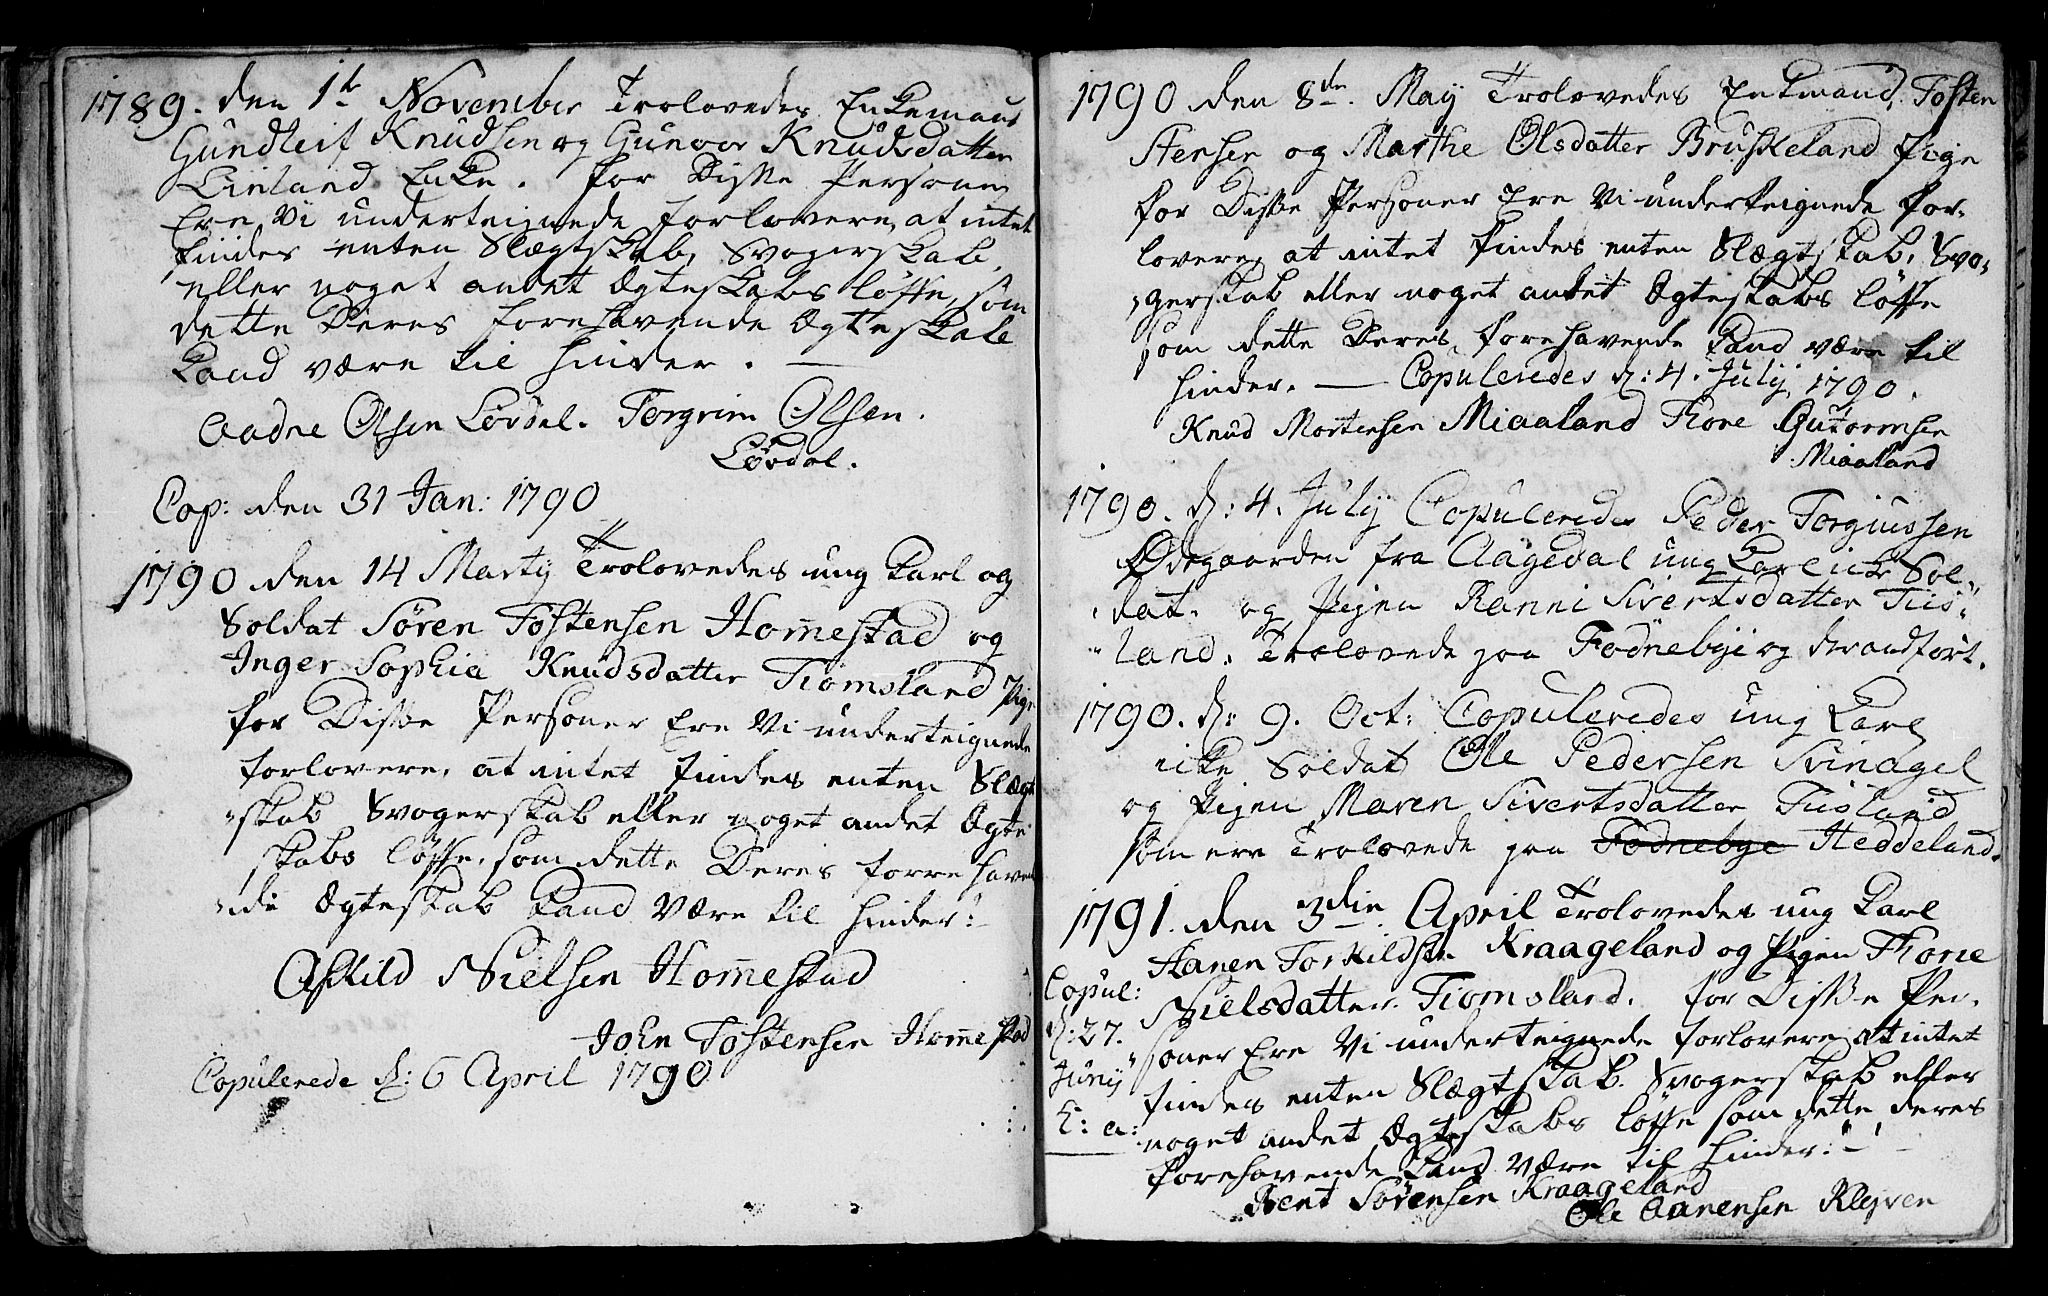 1789. den 1te November Trolovedes Enkemand
Gundleif Knudsen og Gunvor Knudsdatter
Linland Enke. for Disse Personer
Ere Vi underteignede Forlovere, at intet
findes enten Slægtskab, Svogerskab,
eller noget andet Ægteskabs løfte, som
dette Deres forehavende Ægteskab
kand være til hinder. —
Aadne Olsen Lövdal. Torgrim Olsen.
Lövdal.
Cop: den 31 Jan: 1790
1790 den 14 Martÿ Trolovedes ung Karl og
Soldat Sören Tostensen Hom̄estad og
Inger Sophia Knudsdatter Tiomsland Pige
for Disse Personer Ere Vi underteignede
forlovere, at intet findes enten Slægt
"skab Svogerskab eller noget andet Ægte
skabs løfte, som dette Deres forrehaven
"de Ægteskab kand være til hinder:-
Askild Nielsen Hom̄estad
John Tostensen Hom̄estad
Copulerede d: 6 April 1790
1790 den 8de. May Trolovedes Enkmand, Tosten
Stensen og Marthe Olsdatter Bruskeland Pige
for Disse Personer Ere Vi underteignede for-
lovere, at intet findes enten Slægtskab, Svo-
"gerskab eller noget andet Ægteskabs løfte
som dette Deres forehavende kand være til
hinder. — Copuleredes d: 4. Julÿ 1790.
Knud Mortensen Miaaland Tore Gutormsen
Miaaland
1790. d: 4. Julÿ Copuleredes Peder Torgiussen
Ødegaarden fra Aagedal ung Karl icke Sol-
"dat. og Pigen Ranni Sivertsdatter Tius-
"land. Trolovede paa Fodnebye og
1790. d: 9. Oct: Copuleredes ung Karl
icke Soldat Ole Pedersen Svinagel
og Pigen Maren Sivertsdatter Tiusland
som ere Trolovede paa Fodnebye Heddeland.
1791. den 3die April Trolovedes ung Karl
Hanen Torkildsen Kraageland og Pigen Thorie
Copul:
Nielsdatter Tiomsland. for Disse Per-
d: 27.
"soner Ere Vi underteignede forlovere at intet
Junÿ
findes enten Slægtskab. Svogerskab eller
h: a:
noget andet Ægteskabs løfte som dette deres
forehavende kand være til hinder:-
Bent Sörensen Kraageland
Ole Aanensen Kleven